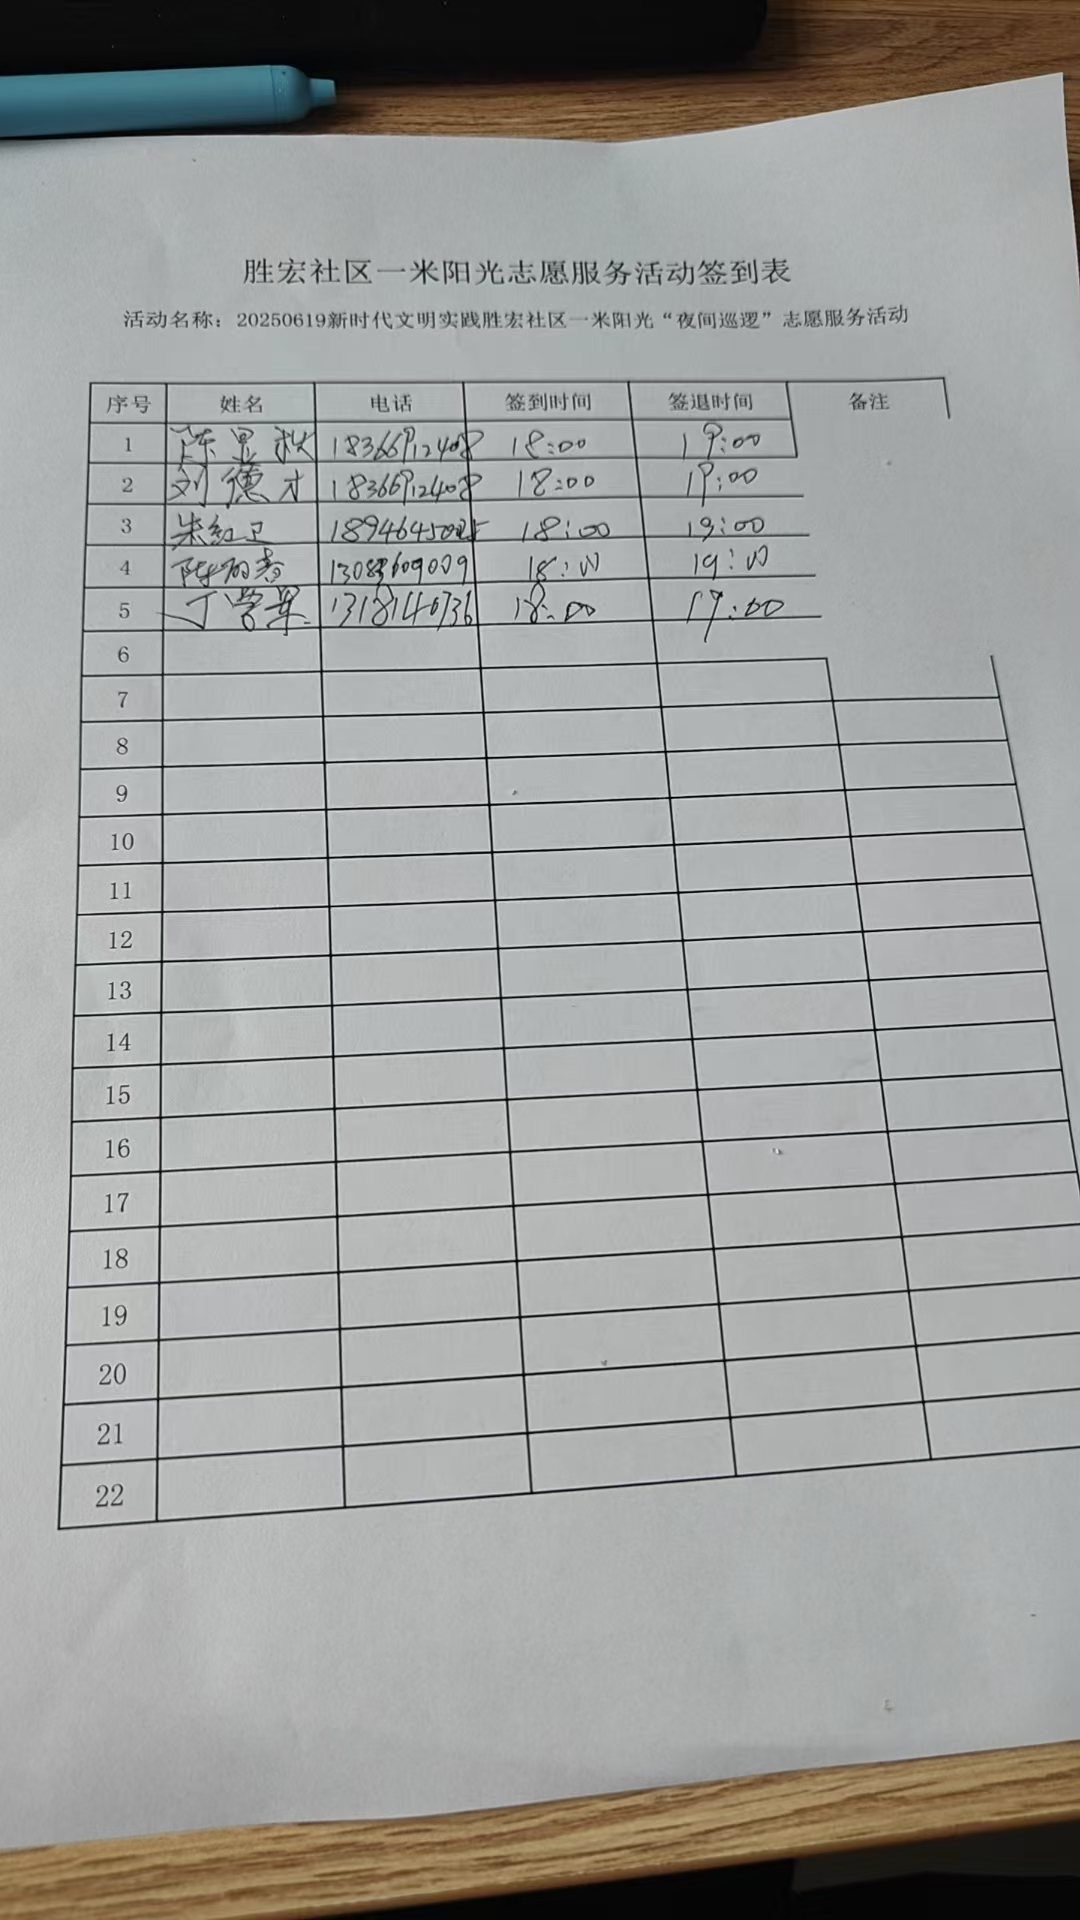 胜宏社区一米阳光志愿服务活动签到表
活动名称：20250619新时代文明实践胜宏社区一米阳光“夜间巡逻”志愿服务活动
序号 姓名 电话 签到时间 签退时间 备注
1 陈显秋 18366912408 18:00 19:00
2 刘德才 18366912408 18:00 19:00
3 朱红卫 18:00 19:00
4 18:00 19:00
5 丁学军 13181140736 18:00 19:00
6
7
8
9
10
11
12
13
14
15
16
17
18
19
20
21
22